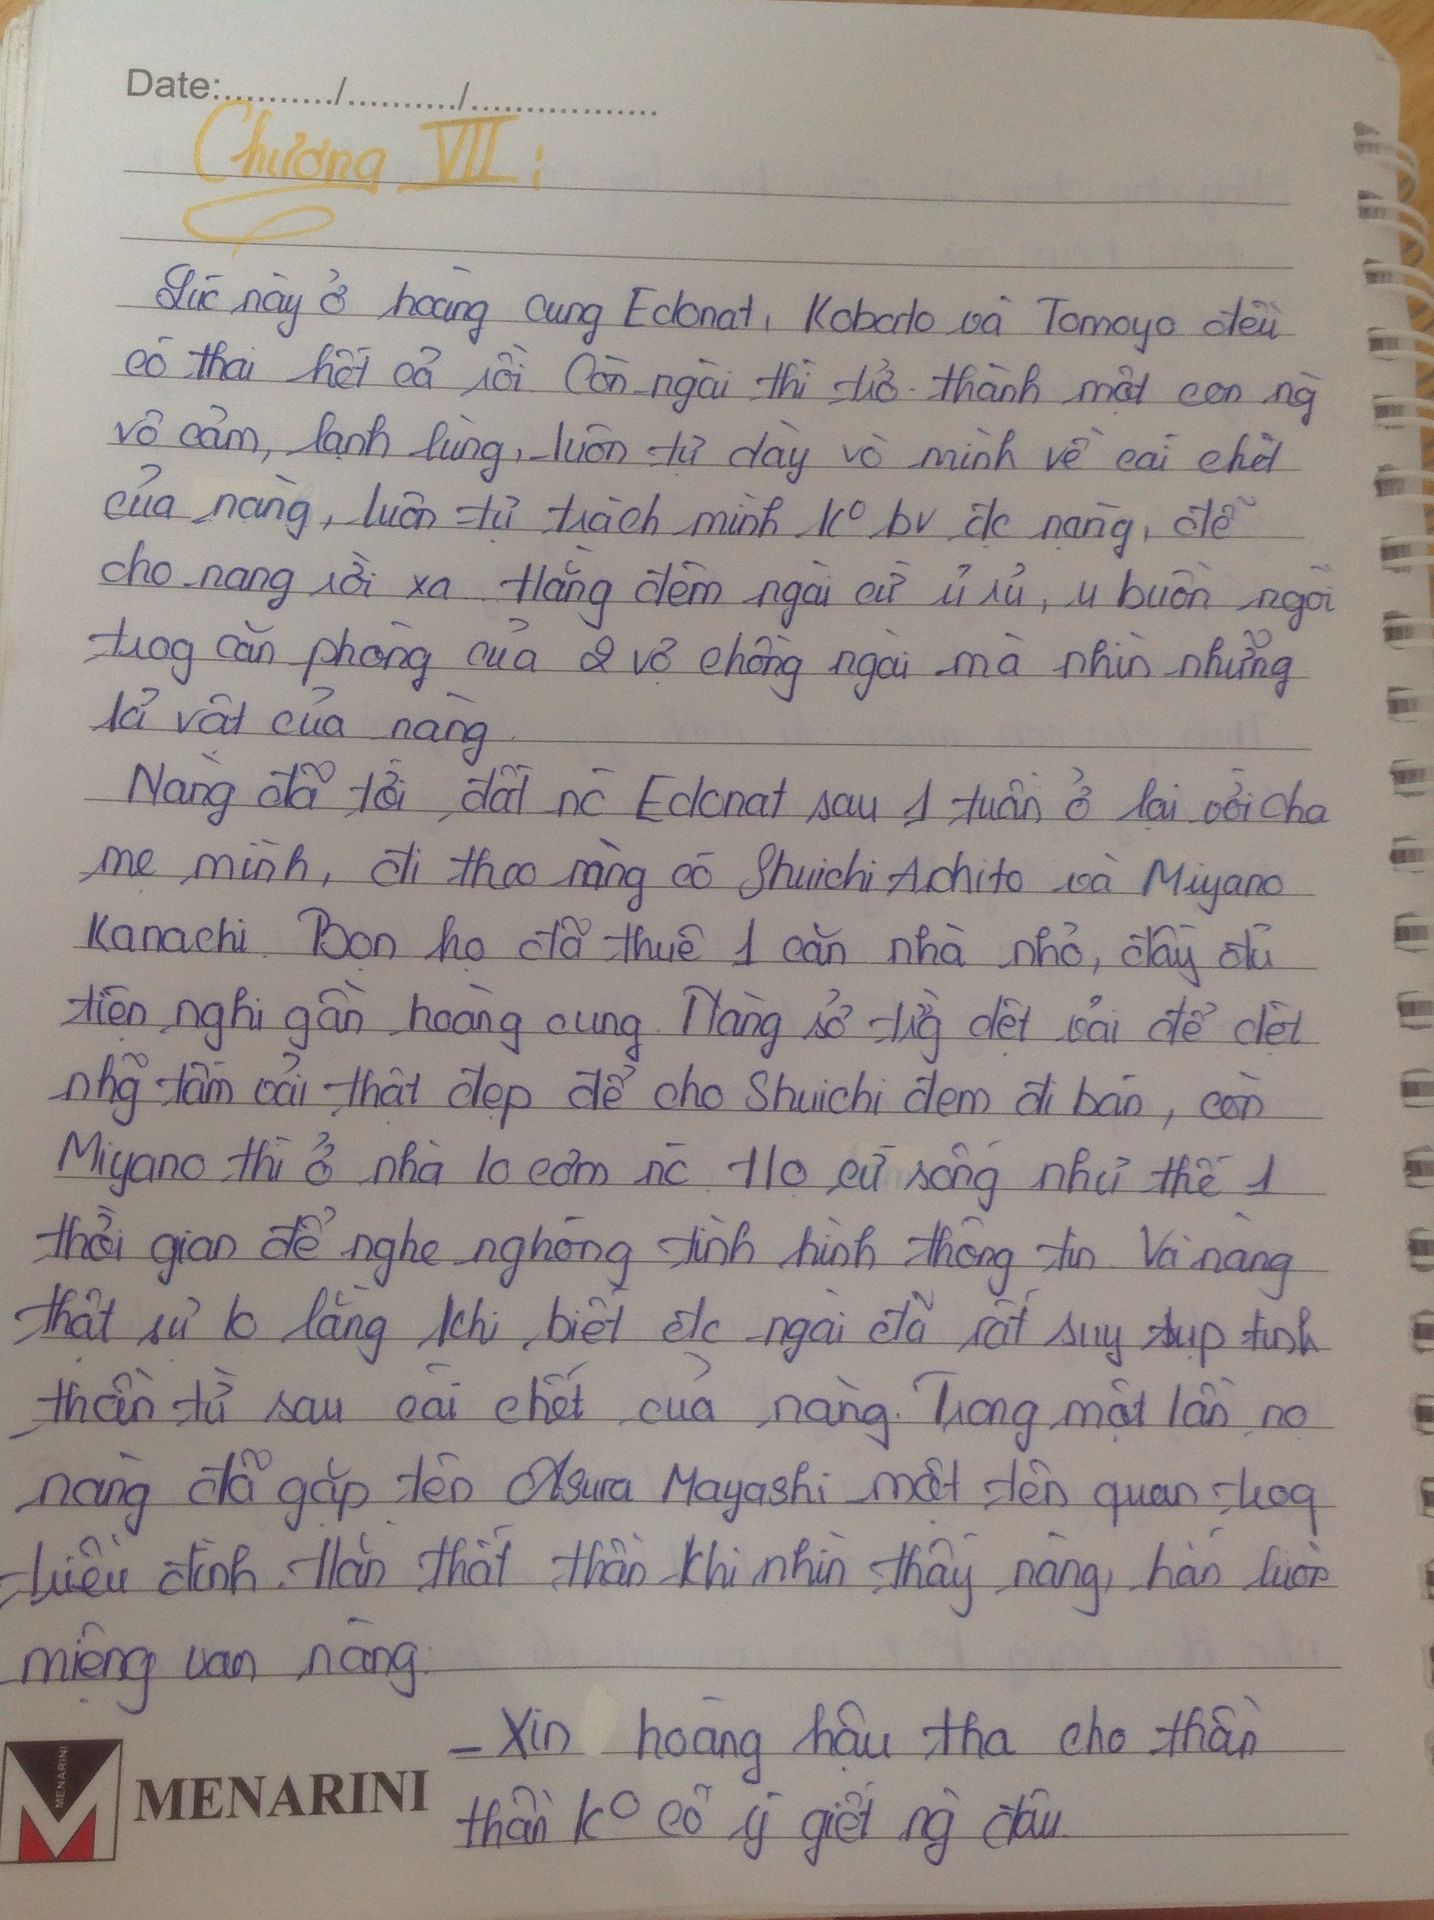 Date:........../........../.................
Chương VII:
Lúc này ở hoàng cung Edonat, Kobado và Tomoyo đều
có thai hết cả rồi Còn ngài thì trở thành một con ng̀
vô cảm, lạnh lùng, luôn tự dày vò mình về cái chết
của nàng, luôn tự trách mình k° bv đc nàng, để
cho nàng rời xa Hằng đêm ngài cứ ủ rủ, u buồn ngồi
trog căn phòng của 2 vợ chồng ngài mà nhìn những
kỉ vật của nàng.
Nàng đã tới đất nc Edonat sau 1 tuần ở lại với cha
mẹ mình, đi theo nàng có Shuichi Achito và Miyano
Kanachi. Bọn họ đã thuê 1 căn nhà nhỏ, đầy đủ
tiện nghi gần hoàng cung. Nàng sở trg̀ dệt vải để dệt
nhg̃ tấm vải thật đẹp để cho Shuichi đem đi bán, còn
Miyano thì ở nhà lo cơm nc Họ cứ sống như thế 1
thời gian để nghe nghóng tình hình thông tin. Và nàng
thật sự lo lắng khi biết đc ngài đã rất suy sụp tinh
thần từ sau cái chết của nàng. Trong một lần nọ
nàng đã gặp tên Asura Mayashi một tên quan trog
triều đình. Hắn thất thần khi nhìn thấy nàng, hắn luôn
miệng van nàng.
- Xin hoàng hậu tha cho thần
thần k° cố ý giết ng̀ đâu
MENARINI
MENARINI